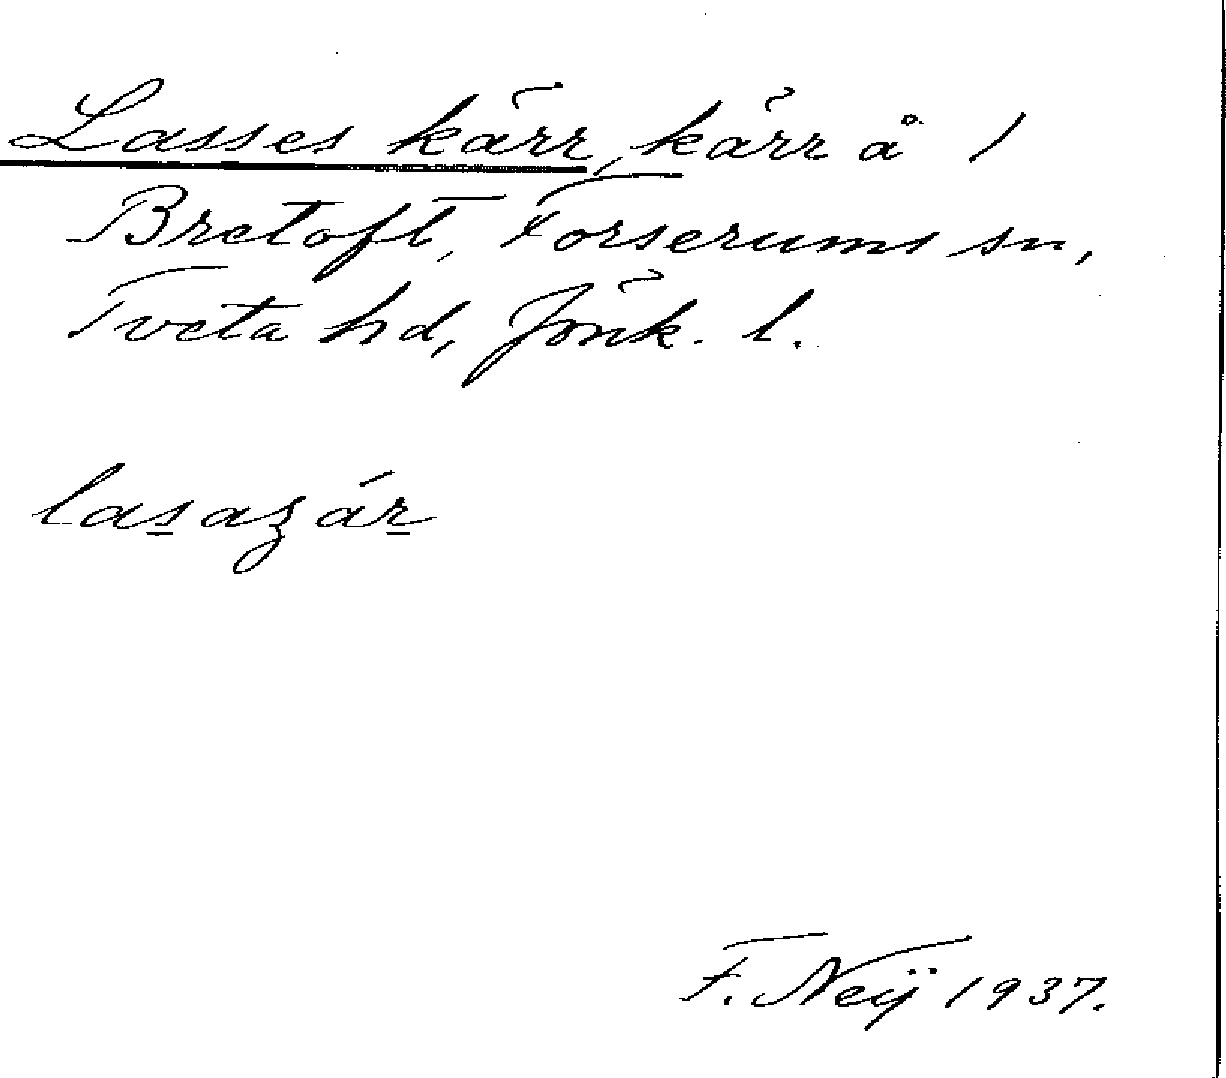 Lasses kärr, kärr å 1
Bretoft, Forserums sn,
Tveta hd, Jönk. l.
lasaʒár
F. Neij 1937.